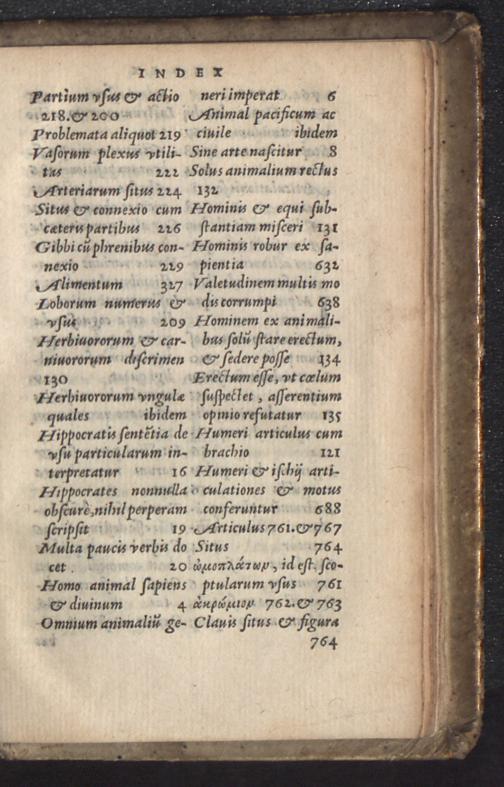 INDEX
Partium vſus & actio
218. & 200
Problemata aliquot 219
Vaſorum plexus vtili-
tas 222
Arteriarum ſitus 224
Situs & connexio cum
cæteris partibus 226
Gibbi cū phrenibus con-
nexio 229
Alimentum 327
Loborum numerus &
vſus 209
Herbiuororum & car-
niuororum diſcrimen
130
Herbiuororum vngulæ
quales ibidem
Hippocratis ſentētia de
vſu particularum in-
terpretatur 16
Hippocrates nonnulla
obſcurè, nihil perperam
ſcripſit 19
Multa paucis verbis do
cet. 20
Homo animal ſapiens
& diuinum 4
Omnium animaliū ge-
neri imperat 6
Animal pacificum ac
ciuile ibidem
Sine arte naſcitur 8
Solus animalium rectus
132
Hominis & equi ſub-
ſtantiam miſceri 131
Hominis robur ex ſa-
pientia 632
Valetudinem multis mo
dis corrumpi 638
Hominem ex animali-
bus ſolū ſtare erectum,
& ſedere poſſe 134
Erectum eſſe, vt cœlum
ſuſpectet, aſſerentium
opinio refutatur 135
Humeri articulus cum
brachio 121
Humeri & iſchij arti-
culationes & motus
conferuntur 688
Articulus 761. & 767
Situs 764
ὠμοπλάτων, id eſt. ſco-
ptularum vſus 761
ἀκρώμιον 762. & 763
Clauis ſitus & figura
764